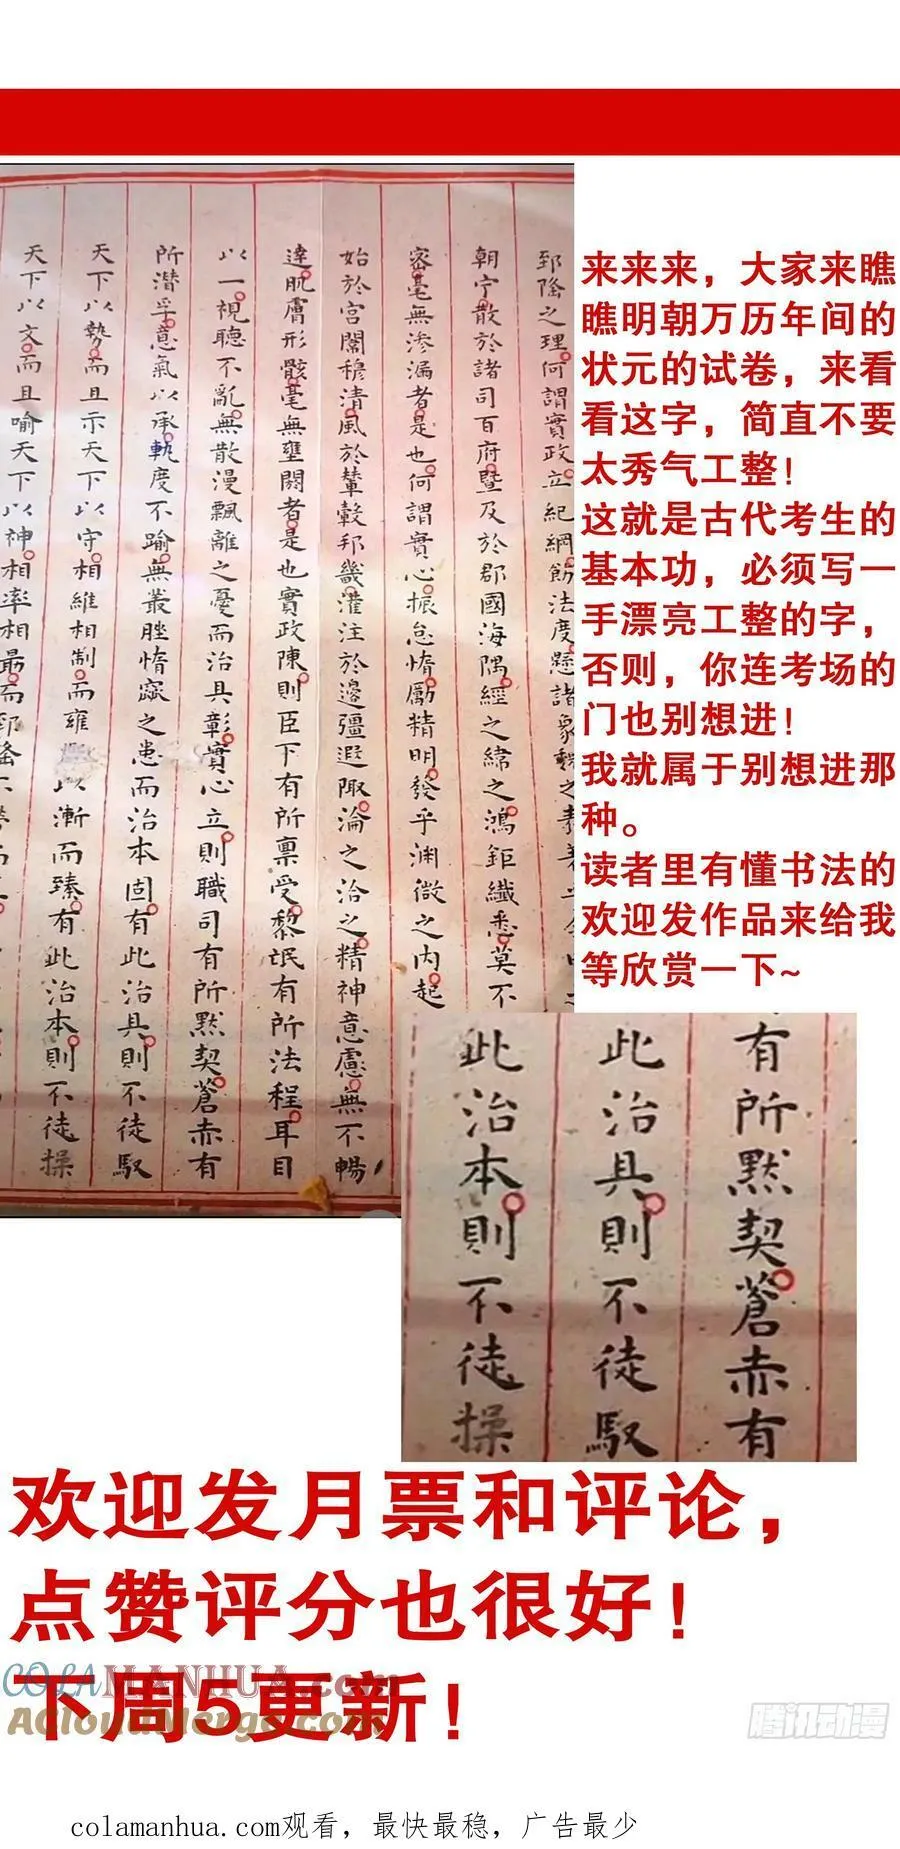 郅隆之理何謂實政立紀綱飭法度懸諸象魏之
朝宁散於諸司百府暨及於郡國海隅經之緯之鴻鉅纖悉莫不
密毫無滲漏者是也何謂實心振怠惰勵精明發乎淵微之内起
始於宮闈穆清風於輦轂邦畿灌注於邊疆遐陬淪之洽之精神意慮無不暢
達肌膚形骸毫無壅閼者是也實政陳則臣下有所稟受黎氓有所法程耳目
以一視聽不亂無散漫飄離之憂而治具彰實心立則職司有所默契蒼赤有
所潛孚意氣以承軌度不踰無叢脞惰窳之患而治本固有此治具則不徒馭
天下以勢而且示天下以守相維相制而雍以漸而臻有此治本則不徒操
天下以文而且喻天下以神相率相最而郅隆不
来来来，大家来瞧
瞧明朝万历年间的
状元的试卷，来看
看这字，简直不要
太秀气工整！
这就是古代考生的
基本功，必须写一
手漂亮工整的字，
否则，你连考场的
门也别想进！
我就属于别想进那
种。
读者里有懂书法的
欢迎发作品来给我
等欣赏一下~
有所默契蒼赤有
此治具則不徒馭
此治本則不徒操
欢迎发月票和评论，
点赞评分也很好！
下周5更新！
COLAMANHUA.com
ACloudMerge.com
腾讯动漫
colamanhua.com观看，最快最稳，广告最少